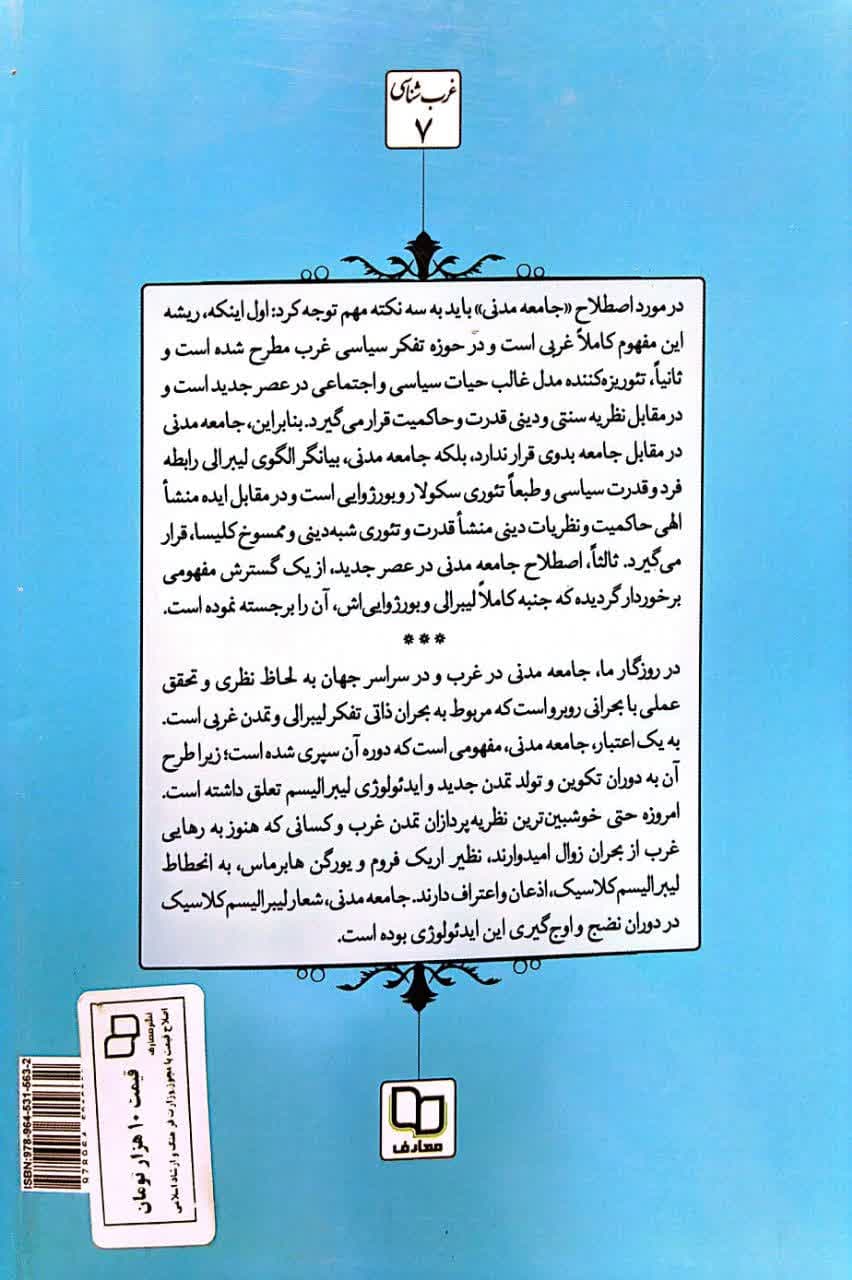 غرب شناسی
۷
در مورد اصطلاح «جامعه مدنی» باید به سه نکته مهم توجه کرد: اول اینکه، ریشه
این مفهوم کاملاً غربی است و در حوزه تفکر سیاسی غرب مطرح شده است و
ثانیاً، تئوریزه‌کننده مدل غالب حیات سیاسی و اجتماعی در عصر جدید است و
در مقابل نظریه سنتی و دینی قدرت و حاکمیت قرار می‌گیرد. بنابراین، جامعه مدنی
در مقابل جامعه بدوی قرار ندارد، بلکه جامعه مدنی، بیانگر الگوی لیبرالی رابطه
فرد و قدرت سیاسی و طبعاً تئوری سکولار و بورژوایی است و در مقابل ایده منشأ
الهی حاکمیت و نظریات دینی منشأ قدرت و تئوری شبه‌دینی و ممسوخ کلیسا، قرار
می‌گیرد. ثالثاً، اصطلاح جامعه مدنی در عصر جدید، از یک گسترش مفهومی
برخوردار گردیده که جنبه کاملاً لیبرالی و بورژوایی‌اش، آن را برجسته نموده است.
***
در روزگار ما، جامعه مدنی در غرب و در سراسر جهان به لحاظ نظری و تحقق
عملی با بحرانی روبرو است که مربوط به بحران ذاتی تفکر لیبرالی و تمدن غربی است.
به یک اعتبار، جامعه مدنی، مفهومی است که دوره آن سپری شده است؛ زیرا طرح
آن به دوران تکوین و تولد تمدن جدید و ایدئولوژی لیبرالیسم تعلق داشته است.
امروزه حتی خوشبین‌ترین نظریه‌پردازان تمدن غرب و کسانی که هنوز به رهایی
غرب از بحران زوال امیدوارند، نظیر اریک فروم و یورگن هابرماس، به انحطاط
لیبرالیسم کلاسیک، اذعان و اعتراف دارند. جامعه مدنی، شعار لیبرالیسم کلاسیک
در دوران نضج و اوج‌گیری این ایدئولوژی بوده است.
معارف
نشر معارف
اصلاح قیمت با مجوز وزارت فرهنگ و ارشاد اسلامی
قیمت ۱۰ هزار تومان
ISBN:978-964-531-563-2